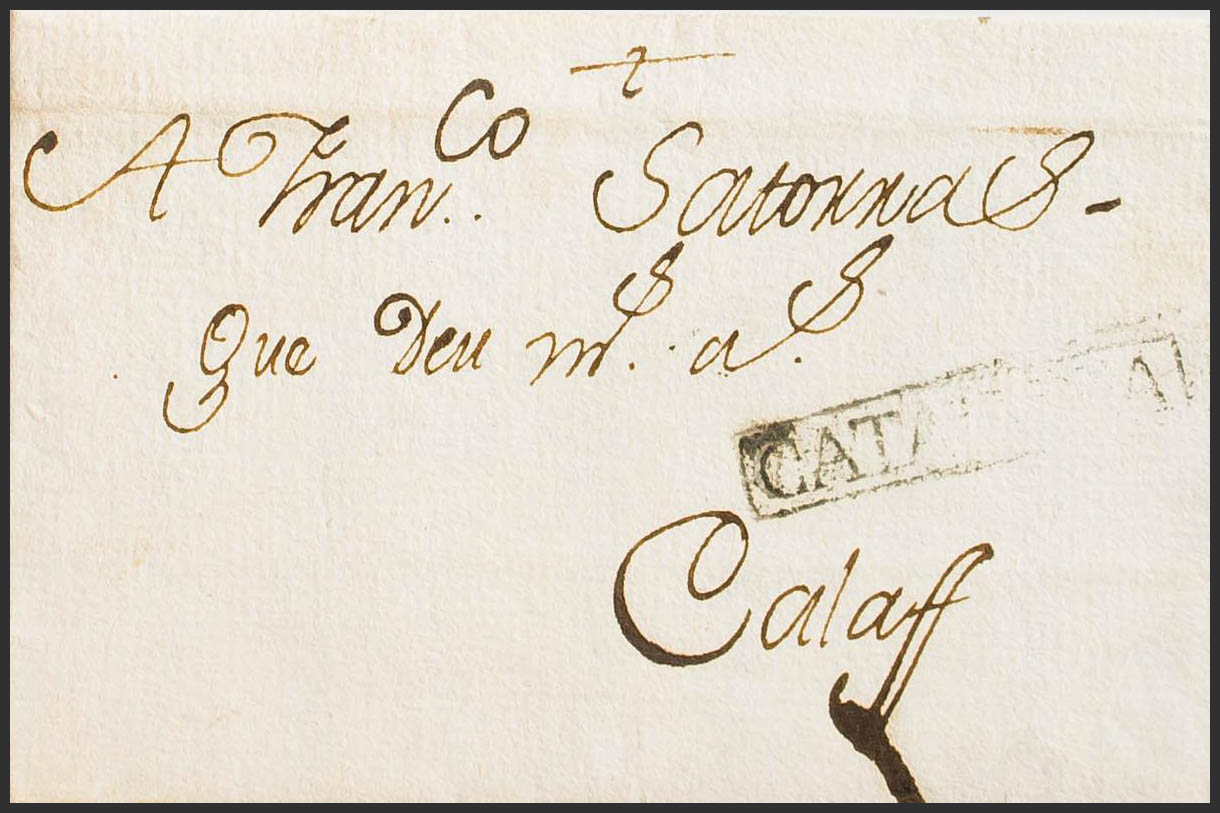 †
A Fran.ᶜᵒ Satorras -
Que Deu m.ˢ a.ˢ
CATALUÑA
Calaff